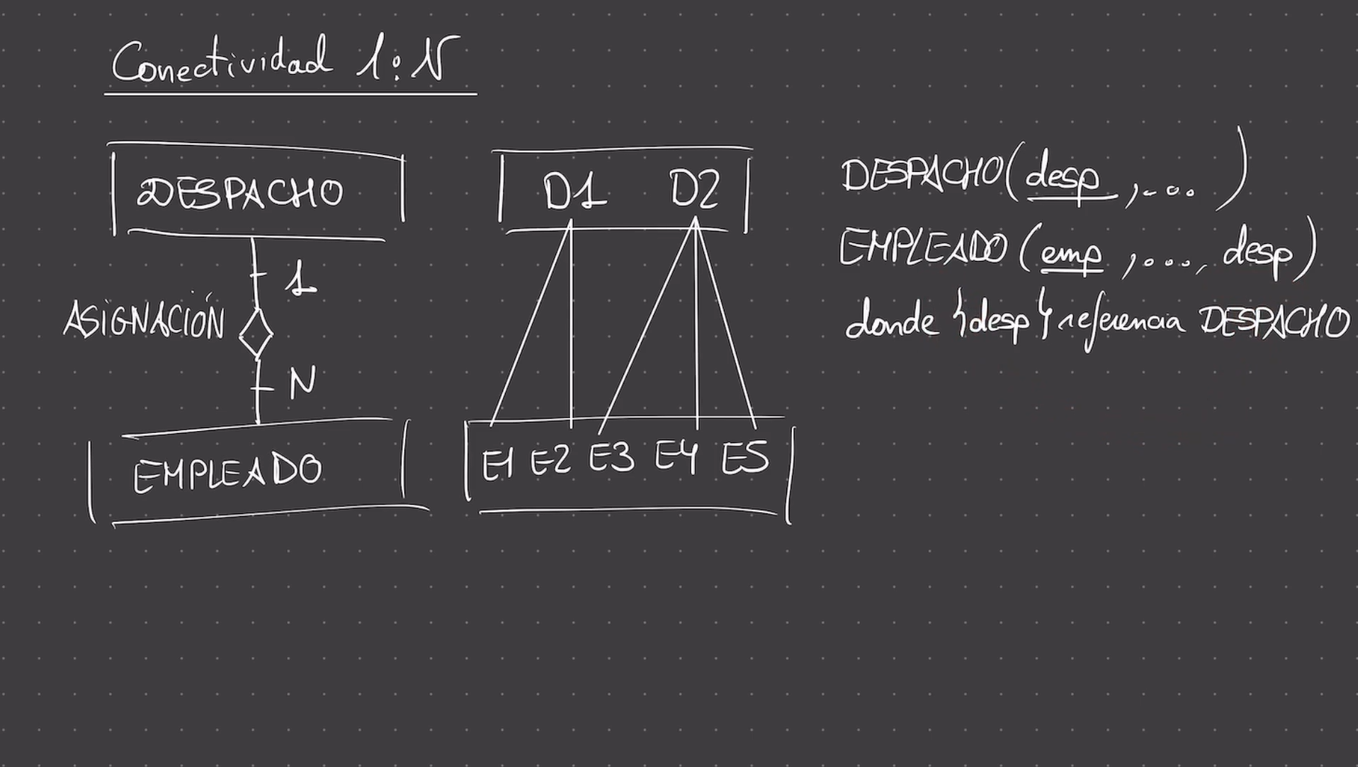 Conectividad 1:N
DESPACHO
1
ASIGNACIÓN
N
EMPLEADO
D1 D2
E1 E2 E3 E4 E5
DESPACHO(desp,....)
EMPLEADO(emp,...., desp)
donde {desp} referencia DESPACHO